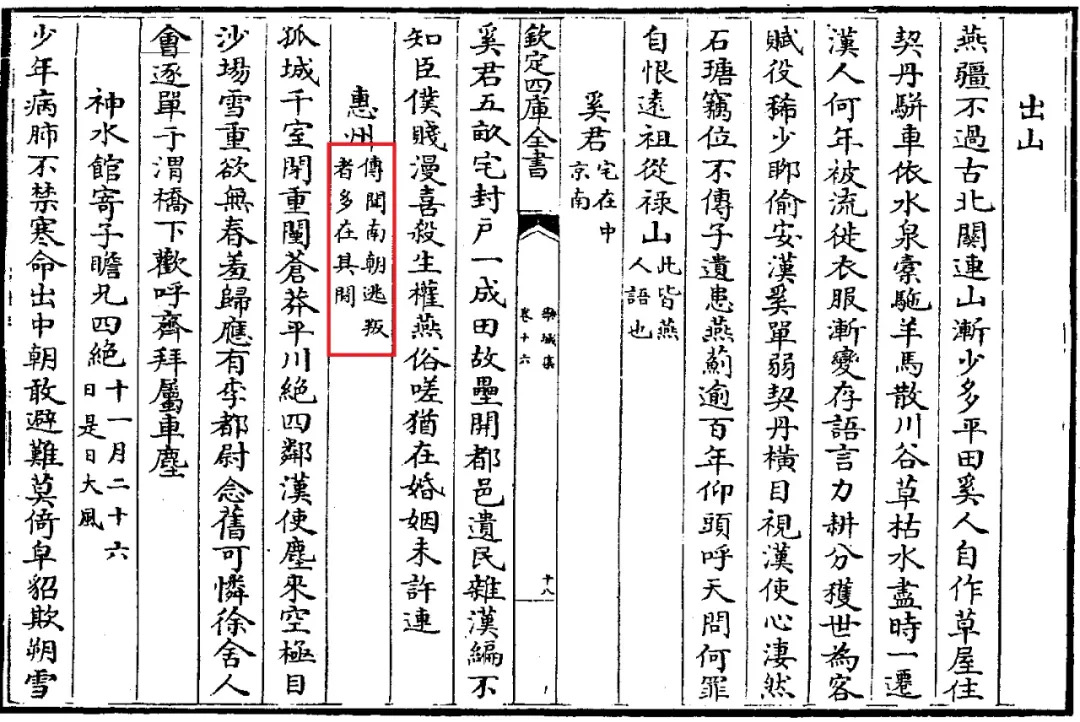 出山
燕疆不過古北闗連山漸少多平田奚人自作草屋住
契丹駢車依水泉橐駞羊馬散川谷草枯水盡時一遷
漢人何年被流徙衣服漸變存語言力耕分穫世為客
賦役稀少聊偷安漢奚單弱契丹橫目視漢使心淒然
石瑭竊位不傳子遺患燕薊逾百年仰頭呼天問何罪
自恨逺祖從禄山此皆燕
人語也
奚君宅在中
京南
欽定四庫全書
欒城集
卷十六
十八
奚君五畝宅封戶一成田故壘開都邑遺民雜漢編不
知臣僕賤漫喜殺生權燕俗嗟猶在婚姻未許連
惠州傳聞南朝逃叛
者多在其間
孤城千室閉重闉蒼莽平川絶四鄰漢使塵來空極目
沙場雪重欲無春羞歸應有李都尉念舊可憐徐舍人
會逐單于渭橋下歡呼齊拜屬車塵
神水館寄子瞻兄四絶十一月二十六
日是日大風
少年病肺不禁寒命出中朝敢避難莫倚皁貂欺朔雪